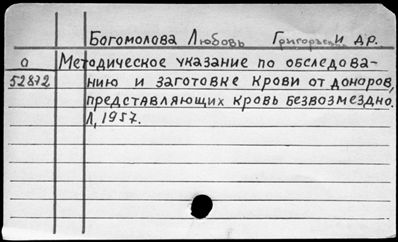 Богомолова Любовь Григорьевна и др.
а Методическое указание по обследова-
52872 нию и заготовке крови от доноров,
представляющих кровь безвозмездно.
Л, 1957.